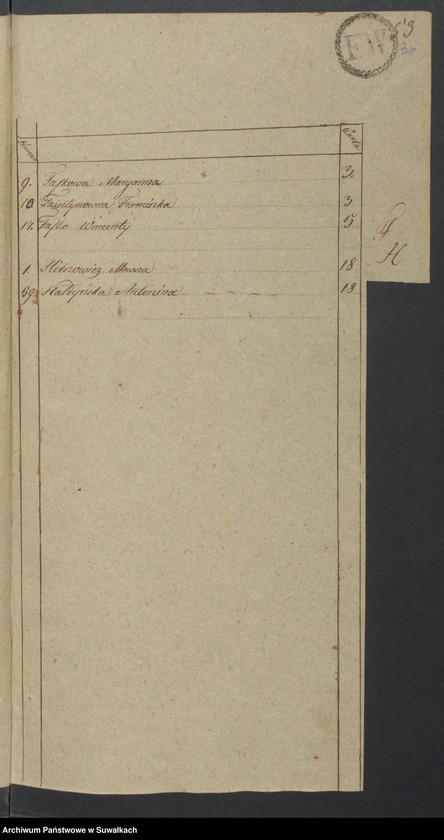 63
Numer
Karta
9. Fajkowa Maryanna 3
10 Faustynowna Franciszka 3
14. Fajko Wincenty 5
F
H
1 Hirszowicz Mowsza 18
69 Hałdyńska Antonina 13
Archiwum Państwowe w Suwałkach